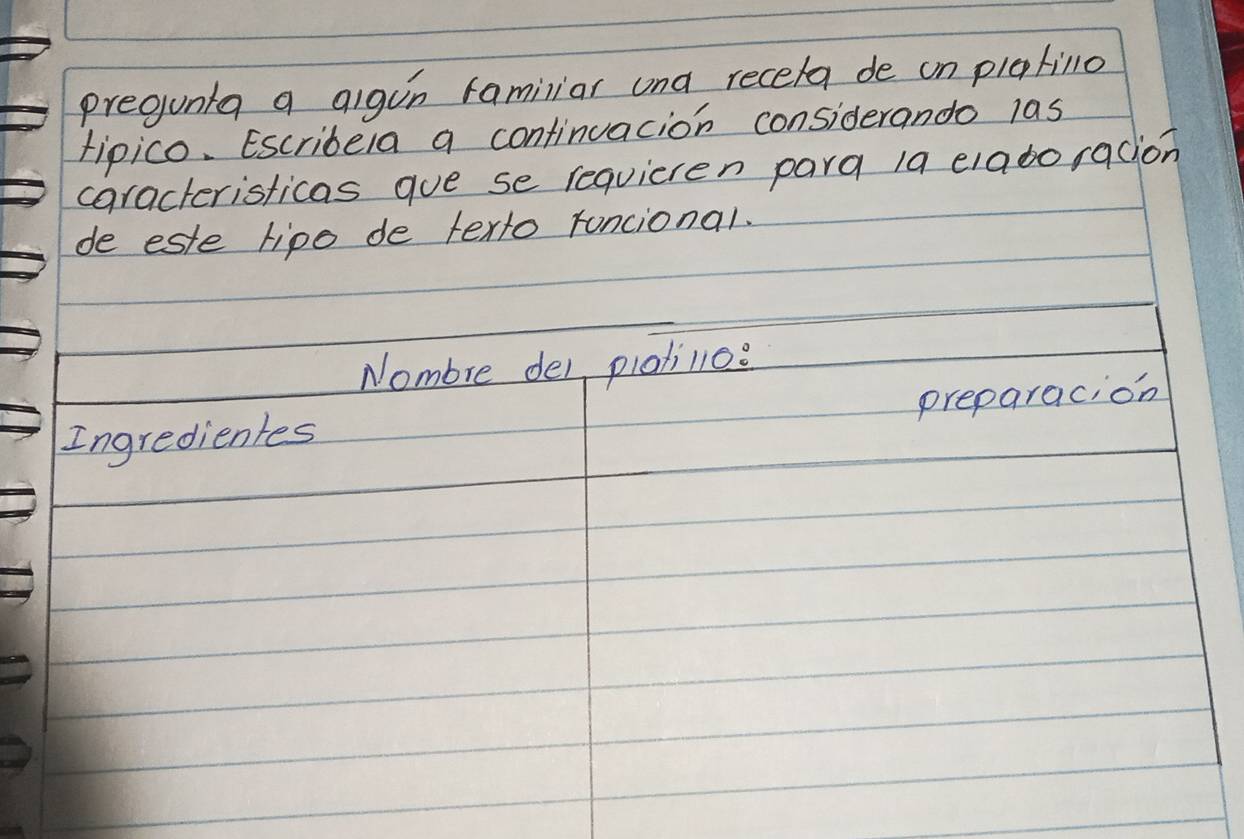 pregunta a algún familiar una receta de un platillo
tipico. Escribela a continuación considerando las
caracteristicas que se requieren para la elaboración
de este tipo de texto funcional.
Nombre del platillo:
Ingredientes
preparación